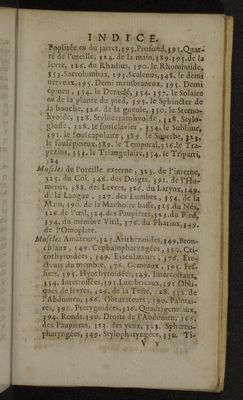 INDICE.
Poplitée ou du jarret, 395. Profond, 391. Quar-
ré de l'oreille, 324. de la main, 389. 395. de la
levre, 326. du Rhadius, 390. le Rhomboïde,
353. Sacrolumbus, 291. Scalenus, 348. le demi
nerveux, 395. Demi membraneux, 395. Demi
épineux, 354. le Dentelé, 354. 357. le Solaire
ou de la plante du pied, 395. le Sphincter de
la bouche, 326. de la gueule, 330. le Sterno-
hyoïde, 328. Styloceratohyoïde, 328. Stylo-
glosse, 328. le sousclavier, 354. le Sublime,
391. le Souscapulaire, 389. le Superbe, 323.
le sousepineux, 389. le Temporal, 326. le Tra-
pezius, 353. le Triangulaire, 354. le Triparti,
324
Muscles de l'oreille externe, 323. de l'interne,
325. du Col, 348. des Doigts, 391. de l'Hu-
merus, 388. des Levres, 326. du Larynx, 349.
de la Langue, 327. des Lumbes, 354. de la
Main, 390. de la Machoire basse, 325. du Nés,
326. de l'œil, 324. des Paupieres, 323. du Pied,
394. du membre Viril, 376. du Pharinx, 349.
de l'Omoplate.
Muscles Amateurs, 323. Arithenoïdes, 349. Bron-
chiaux, 149. Cephalopharyngées, 350. Cri-
cothyroïdées, 349. Ejaculateurs, 376. Ere-
cteurs du membre, 376. Gemeaux, 395. Fes-
siers, 395. Hyothyroïdées, 149. Intercostaux,
354. Interosseés, 391. Lumbricaux, 391. Obli-
ques de levres, 326. de la Teste, 328. 351. de
l'Abdomen, 366. Obturateurs, 390. Palmai-
res, 390. Pterygoïdées, 326. Quadrigemeaux,
394. Ronds, 390. Droits de l'Abdomen, 366.
des Paupieres, 323. des yeux, 323. Spheno-
pharyngées, 349. Stylopharyngées, 350. Ti-
V v